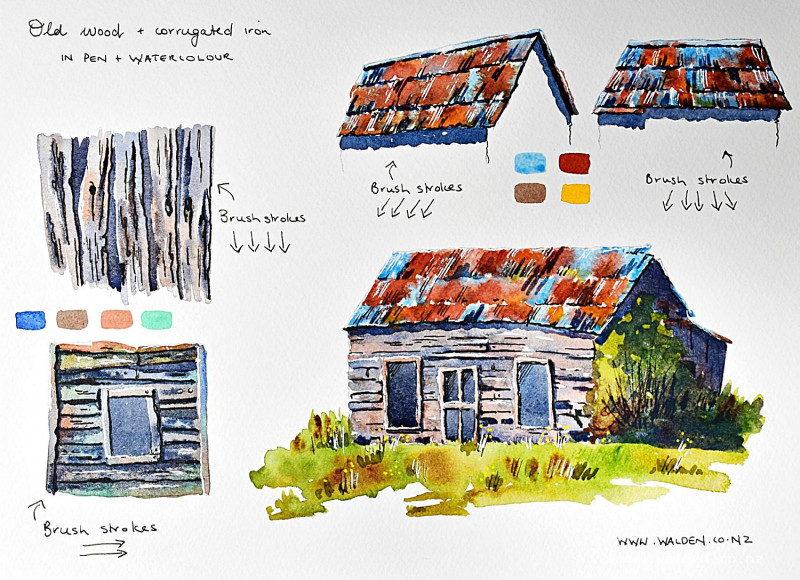 Old wood + corrugated iron
IN PEN + WATERCOLOUR
Brush strokes
Brush strokes
Brush strokes
Brush strokes
WWW.WALDEN.CO.NZ